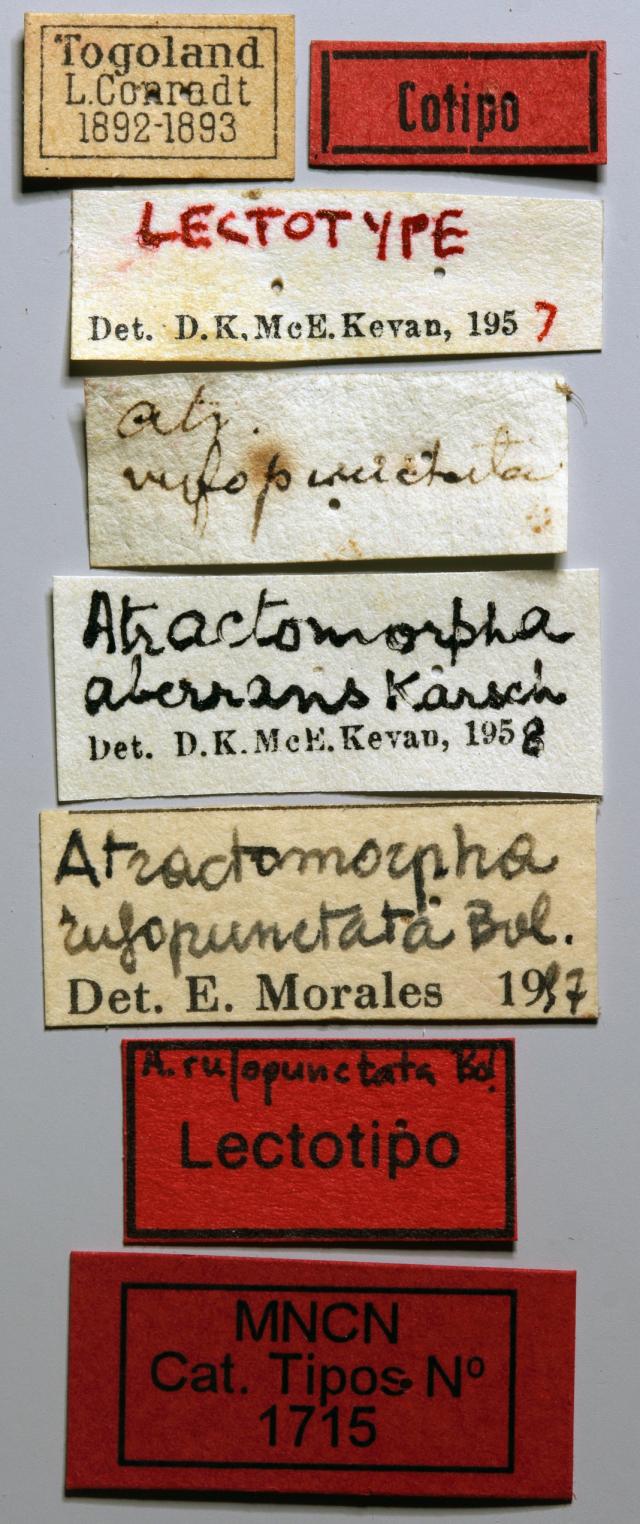 Togoland
L. Conradt
1892-1893
Cotipo
LECTOTYPE
Det. D.K. McE. Kevan, 1957
atr.
rufopunctata
Atractomorpha
aberrans Karsch
Det. D.K. McE. Kevan, 1958
Atractomorpha
rufopunctata Bol.
Det. E. Morales 1997
A. rufopunctata Bol.
Lectotipo
MNCN
Cat. Tipos Nº
1715